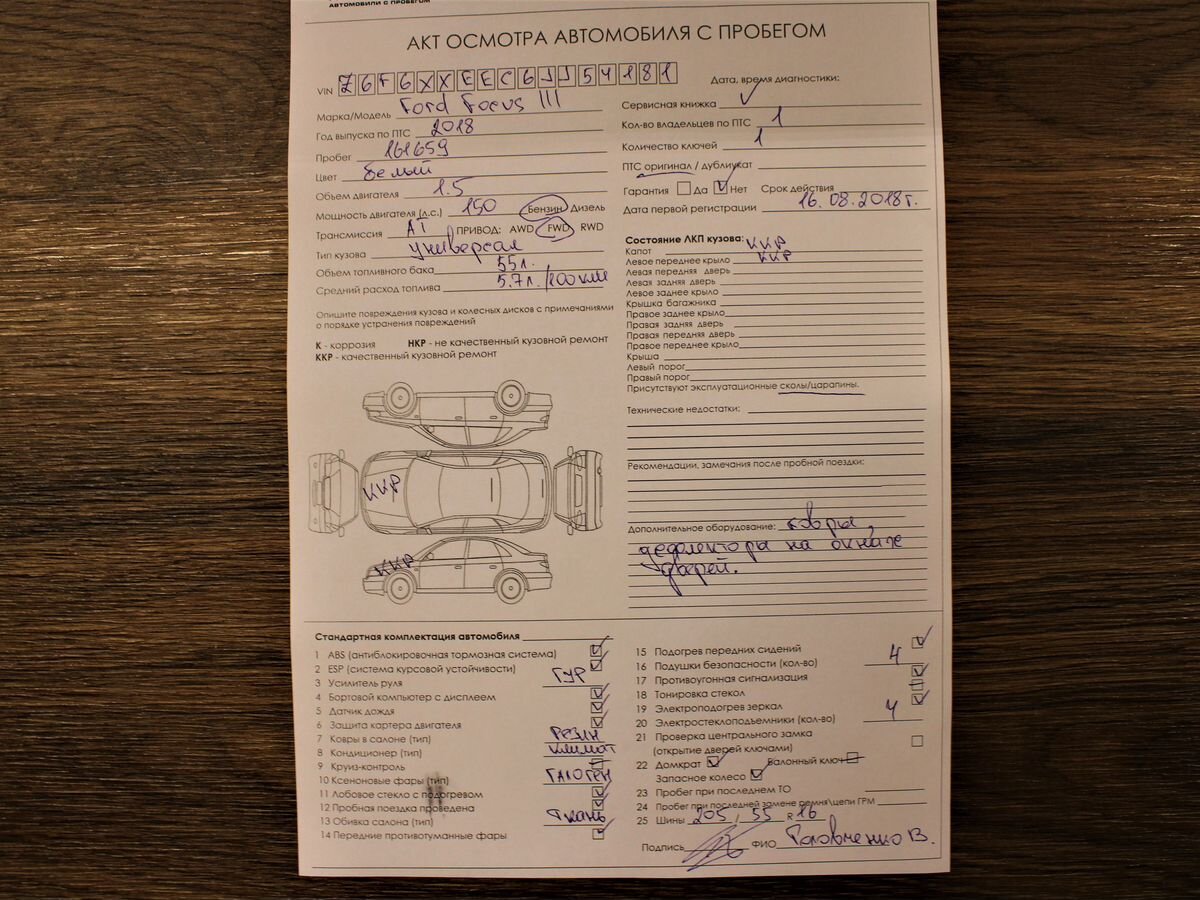 АВТОМОБИЛИ С ПРОБЕГОМ
АКТ ОСМОТРА АВТОМОБИЛЯ С ПРОБЕГОМ
VIN Z6F6XXEEC6JJ54181
Марка/Модель Ford Focus III
Год выпуска по ПТС 2018
Пробег 161659
Цвет белый
Объем двигателя 1.5
Мощность двигателя (л.с.) 150 Бензин Дизель
Трансмиссия АТ ПРИВОД: AWD FWD RWD
Тип кузова универсал
Объем топливного бака 55л.
Средний расход топлива 5.7л./100км
Опишите повреждения кузова и колесных дисков с примечаниями
о порядке устранения повреждений
К - коррозия НКР - не качественный кузовной ремонт
ККР - качественный кузовной ремонт
ККР
ККР
Дата, время диагностики:
Сервисная книжка
Кол-во владельцев по ПТС 1
Количество ключей 1
ПТС оригинал / дубликат
Гарантия Да Нет Срок действия
Дата первой регистрации 16.08.2018г.
Состояние ЛКП кузова:
Капот ККР
Левое переднее крыло ККР
Левая передняя дверь
Левая задняя дверь
Левое заднее крыло
Крышка багажника
Правое заднее крыло
Правая задняя дверь
Правая передняя дверь
Правое переднее крыло
Крыша
Левый порог
Правый порог
Присутствуют эксплуатационные сколы/царапины.
Технические недостатки:
Рекомендации, замечания после пробной поездки:
Дополнительное оборудование: ковры,
дефлекторы на окнах
дверей.
Стандартная комплектация автомобиля
1 ABS (антиблокировочная тормозная система)
2 ESP (система курсовой устойчивости)
3 Усилитель руля ГУР
4 Бортовой компьютер с дисплеем
5 Датчик дождя
6 Защита картера двигателя
7 Ковры в салоне (тип) Резин
8 Кондиционер (тип) климат
9 Круиз-контроль
10 Ксеноновые фары (тип) Галоген
11 Лобовое стекло с подогревом
12 Пробная поездка проведена
13 Обивка салона (тип) Ткань
14 Передние противотуманные фары
15 Подогрев передних сидений
16 Подушки безопасности (кол-во) 4
17 Противоугонная сигнализация
18 Тонировка стекол
19 Электроподогрев зеркал
20 Электростеклоподъемники (кол-во) 4
21 Проверка центрального замка
(открытие дверей ключами)
22 Домкрат Балонный ключ
Запасное колесо
23 Пробег при последнем ТО
24 Пробег при последней замене ремня\цепи ГРМ
25 Шины 205 / 55 R 16
Подпись ФИО Головченко В.